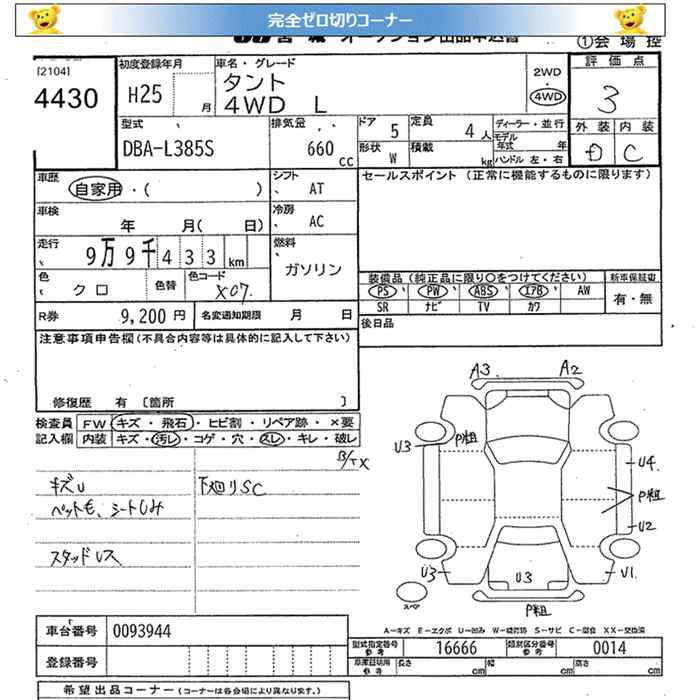 完全ゼロ切りコーナー
オークション出品申込書
①会場控
[2104]
4430
初度登録年月
H25 月
車名・グレード
タント
4WD L
2WD
4WD
評価点
3
型式
DBA-L385S
排気量
660 cc
ドア 5
形状 W
定員 4人
積載 kg
ディーラー・並行
モデル年式 年
ハンドル 左・右
外装 内装
D C
車歴 自家用・( )
シフト AT
セールスポイント (正常に機能するものに限ります)
車検 年 月( 日)
冷房 AC
走行 9万9千433km
燃料 ガソリン
色 クロ 色替 色コード X07
装備品 (純正品に限り○をつけてください) 新車保証書
PS PW ABS エアB AW 有・無
SR ナビ TV カワ
R券 9,200円 名変通知期限 月 日
後日品
注意事項申告欄(不具合内容等は具体的に記入して下さい)
修復歴 有 [箇所 ]
検査員記入欄 FW キズ・飛石・ヒビ割・リペア跡・×要
内装 キズ・汚レ・コゲ・穴・スレ・キレ・破レ
キズU 下廻りSC
ペット毛、シートしみ
スタッドレス
A3 A2
U3 P粗
U4
P粗
U2
U3 U3 U1
P粗
スペア
A-キズ E-エクボ U-凹み W-補修跡 S-サビ C-腐食 XX-交換済
車台番号 0093944
型式指定番号 参考 16666 類別区分番号 参考 0014
登録番号
車庫証明用 参考 長さ cm 幅 cm 高さ cm
希望出品コーナー (コーナーは各会場により異なります。)